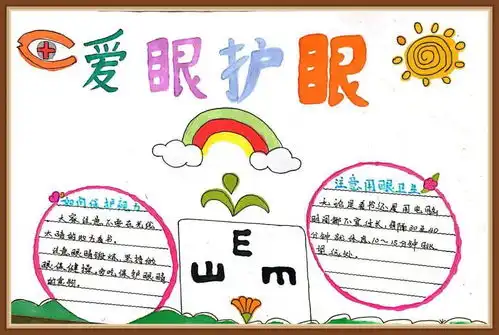 爱眼护眼
如何保护视力
大家注意不要在光线
太暗的地方看书。
注意眼睛锻炼，坚持做
眼保健操，多吃保护眼睛
的食物。
E
E
m
注意用眼卫生
无论是看书还是用电脑
时间都不宜过长，每隔30至40
分钟就休息10～15分钟
望远处。